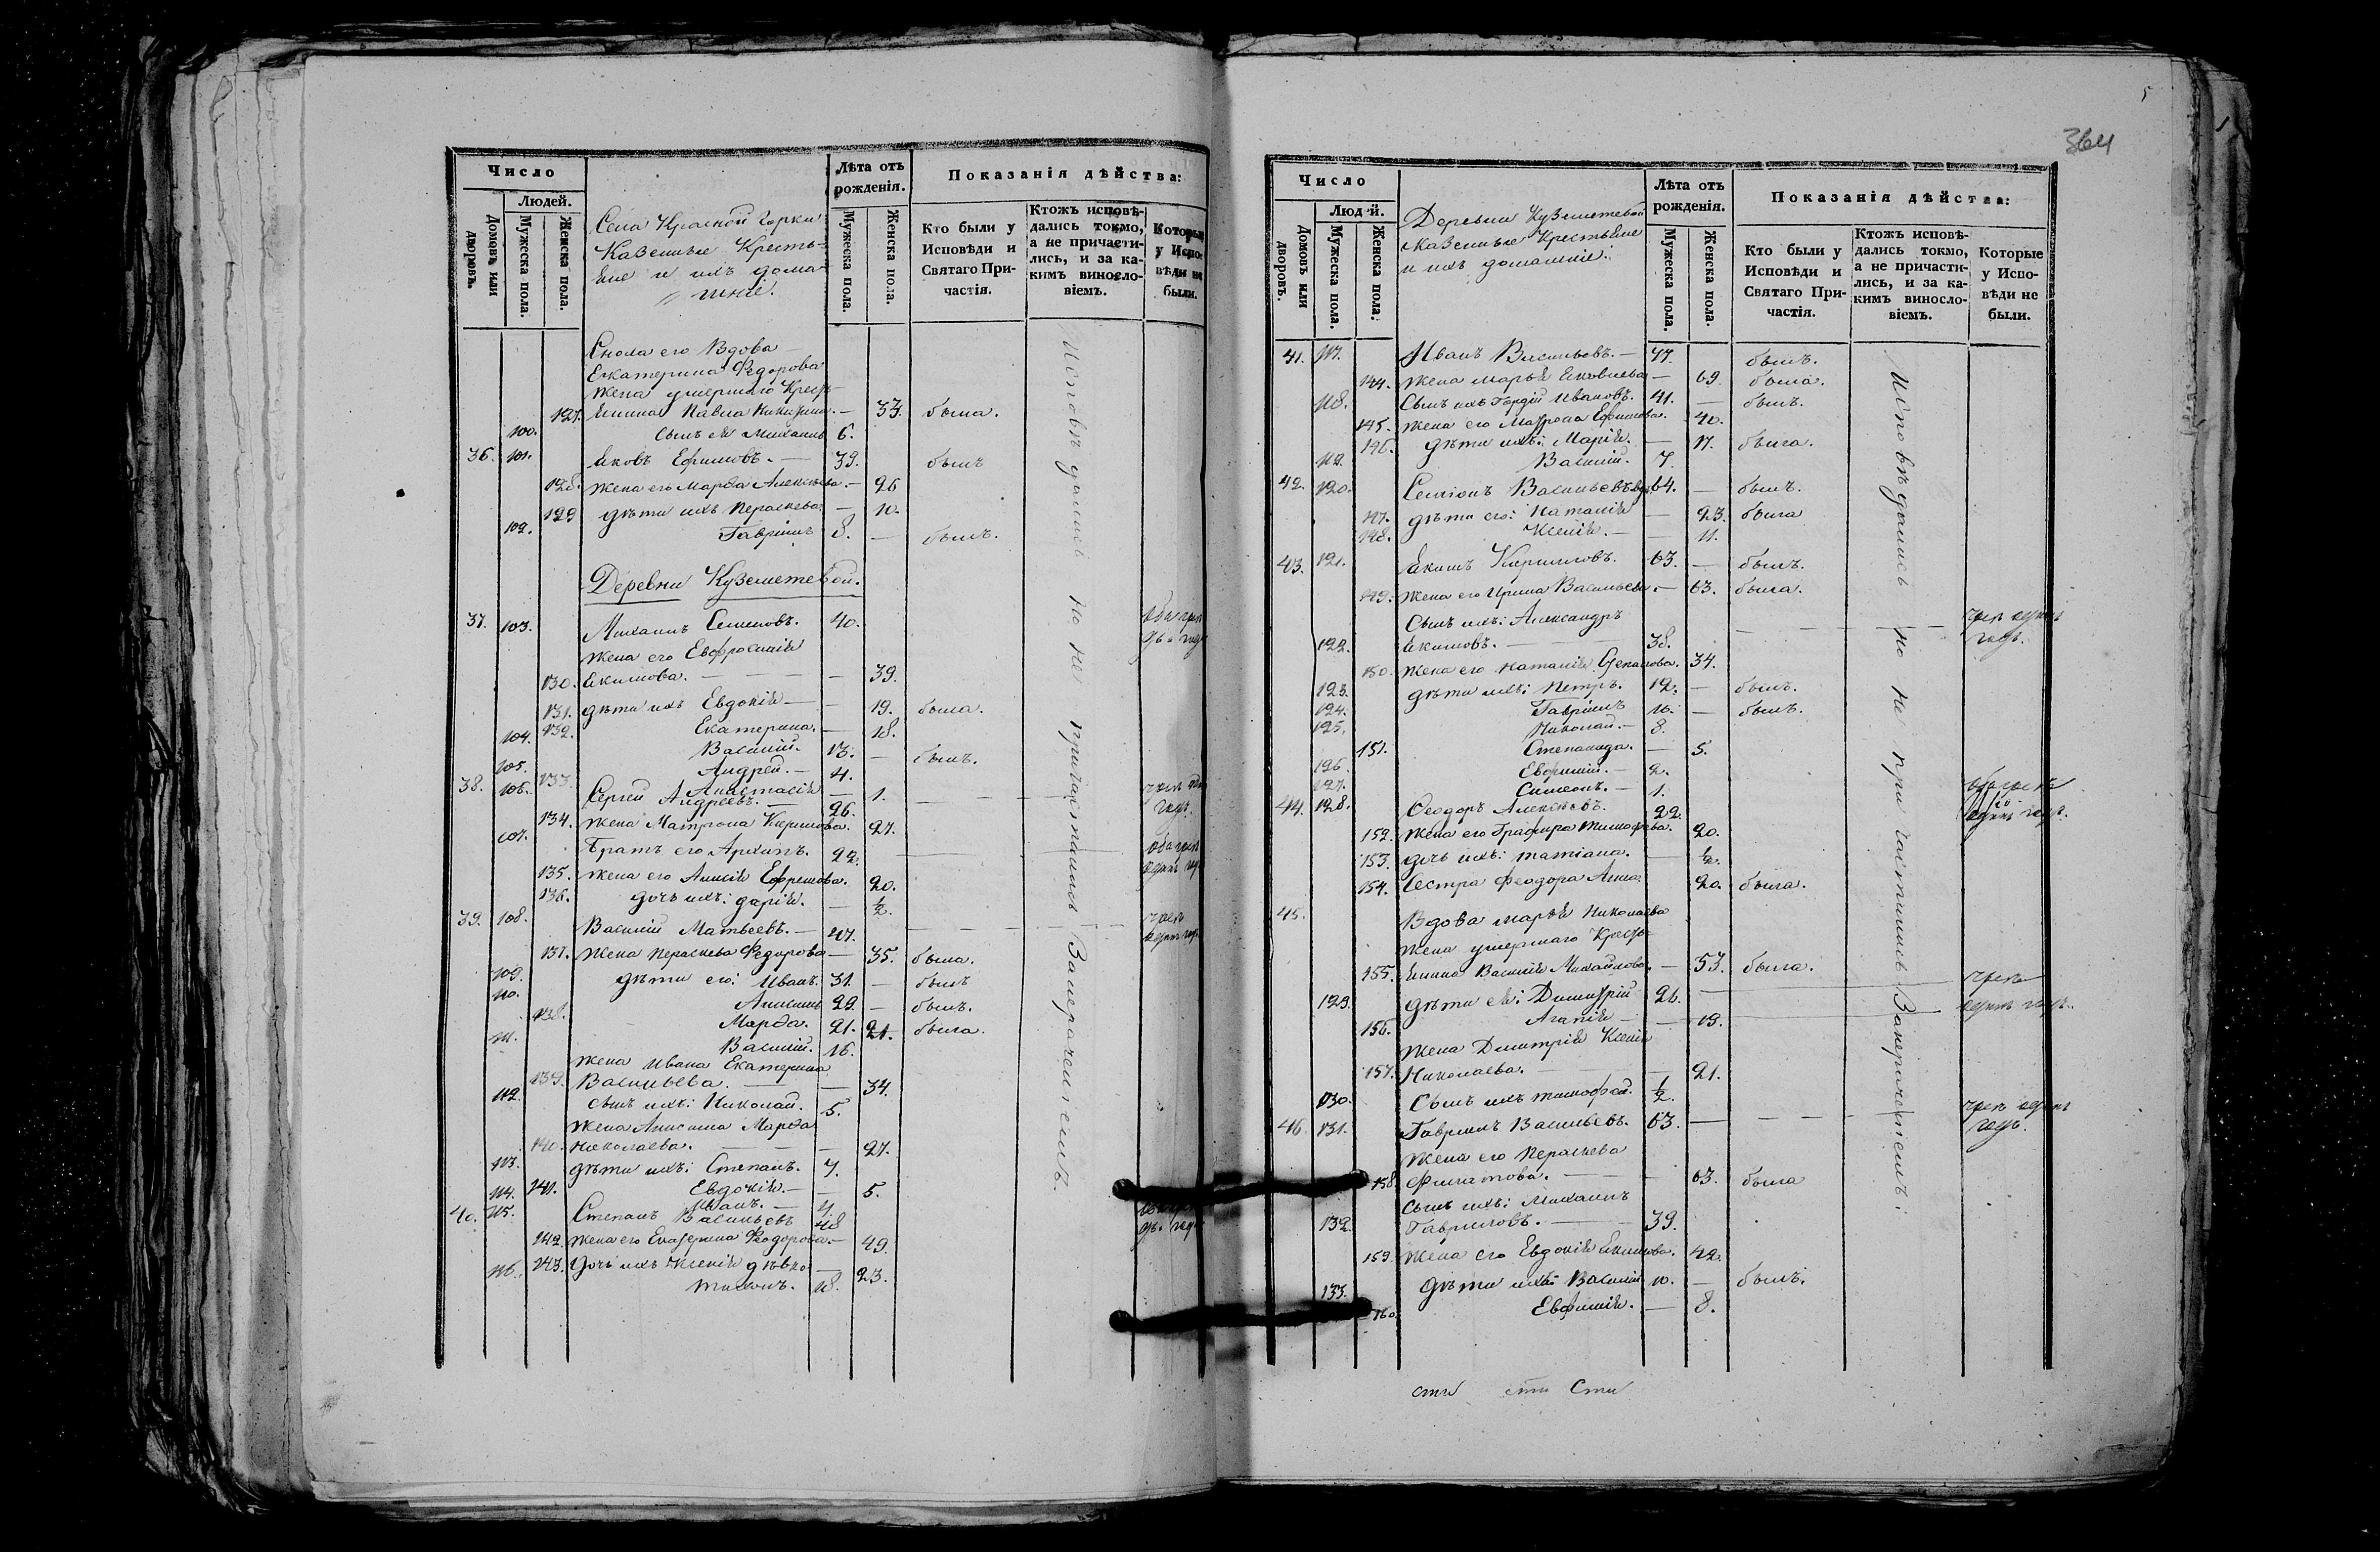 Число
Людей.
Домовъ или дворовъ.
Мужеска пола.
Женска пола.
Села Красной Горки
Казенные Кресть-
яне и ихъ дома-
шніе.
Лѣта отъ рожденія.
Мужеска пола.
Женска пола.
Показанія дѣйства:
Кто были у Исповѣди и Святаго При-частія.
Ктожъ исповѣ-дались токмо, а не причасти-лись, и за ка-кимъ виносло-віемъ.
Которые у Испо-вѣди не были.
Сноха его Вдова
Екатерина Федорова
жена умершаго Кресть-
127. янина Павла 33. была.
100. сынъ ея Михаилъ 6.
36. 101. Яковъ Ефимовъ. — 39. былъ
128. жена его Марѳа Алексѣева. — 26
129 дѣти ихъ Параскева — 10.
102. Гавріилъ 8. — былъ.
Деревни Куземетевой.
37. 103. Михаилъ Семеновъ. 40.
жена его Евфросинія
130. Якимова. — 39.
131. дѣти ихъ Евдокія — 19. была.
132. Екатерина. — 18.
104. Василій. 13. — былъ.
105. Андрей. — 4.
133 Анастасія — 1.
38. 106. Сергей Андреевъ. — 26.
134. жена Матрона Кирилова. 27.
107. Братъ его Архипъ. 22.
135. жена его Анисія Ефремова. 20.
136. дочь ихъ: Дарія. — ½.
39. 108. Василій Матвеевъ. — 47.
137. жена Параскева Федорова — 35. была.
109. дѣти его: Иванъ. 31. — былъ
110. Анисимъ 29. — былъ.
138. Марѳа. 21. 21. была.
111. Василій. 16.
жена Ивана Екатерина
139. Васильева. — 34.
112. сынъ ихъ: Николай. 5.
жена Анисима Марѳа
140. Николаева. — 27.
113. дѣти ихъ: Степанъ. 7.
141. Евдокія. — 5.
114. Иванъ. — 4.
40. 115. Степанъ Васильевъ 48
142. жена его Екатерина Феодорова. — 49.
143. Дочь ихъ Ксенія дѣвка — 23.
116. Тихонъ. 18.
Исповѣдались но не причастились За перачениемъ.
364
Число
Людей.
Домовъ или дворовъ.
Мужеска пола.
Женска пола.
Деревни Куземетевой
Казенные Крестьяне
и ихъ домашніе.
Лѣта отъ рожденія.
Мужеска пола.
Женска пола.
Показанія дѣйства:
Кто были у Исповѣди и Святаго При-частія.
Ктожъ исповѣ-дались токмо, а не причасти-лись, и за ка-кимъ виносло-віемъ.
Которые у Испо-вѣди не были.
41. 117. Иванъ Васильевъ. — 77. былъ.
144. жена Марья Яковлева — 69. была.
118. Сынъ ихъ Гордій Ивановъ. 41. — былъ.
145. жена его Матрона Ефимова. 40.
146. дѣти ихъ: Марія. — 17. была.
119. Василій. 7.
42. 120. Семіонъ Васильевъ вд. 64. — былъ.
147. дѣти его: Наталія — 23. была
148. Ксенія. — 11.
43. 121. Якимъ Кириловъ. 63. — былъ.
149. жена его Ирина Васильева. — 63. была.
Сынъ ихъ: Александръ
122. Якимовъ. — 38.
чрез одинъ годъ.
150. жена его Наталія Степанова. 34.
123. дѣти ихъ: Петръ. 12. — былъ.
124. Гавріилъ 10. — былъ.
125. Николай. — 8.
151. Степанида. — 5.
126. Евфимій. — 2.
127. Симеонъ. — 1.
44. 128. Ѳеодоръ Алексѣевъ. 22.
152. жена его Глафира Тимофеева. 20.
153. дочь ихъ: Татіана. — ½.
154. Сестра Феодора Анна. 20. была.
45. Вдова Марѳа Николаева
жена умершаго Кресть-
155. янина Василія Михайлова. — 53. была.
129. дѣти ея: Димитрій 21.
чрез одинъ годъ.
156. Агапія — 19.
жена Димитрія Ксенія
157. Николаева. — 21.
130. Сынъ ихъ Тимофей. ½.
46. 131. Гавріилъ Васильевъ. 63. —
чрез одинъ годъ.
жена его Параскева
158. Филатова. — 63. была
сынъ ихъ: Михаилъ
132. Гавриловъ. — 39.
159. жена его Евдокія Якимова. 42.
133. дѣти ихъ: Василій 10. — былъ.
160. Евфимія. — 8.
Исповѣдались но не причастились За перачениемъ.